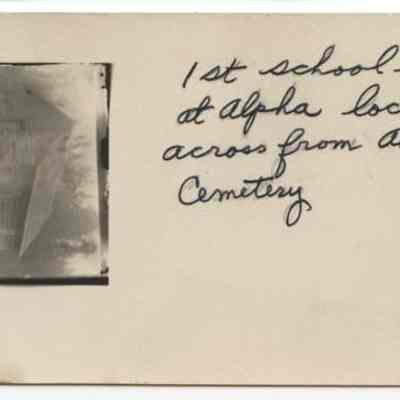 1st school-
at Alpha loc
across from A
Cemetery